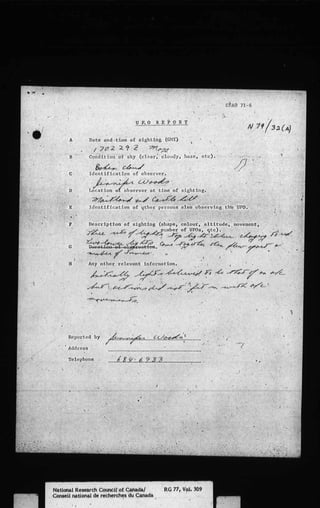 CFAO 71-6
N79/32(A)
UFO REPORT
A Date and time of sighting (GMT)
170229 Z
B Condition of sky (clear, cloudy, haze, etc).
Broken cloud
C Identification of observer.
Jennifer Woods
D Location of observer at time of sighting.
Maitland and
E Identification of other persons also observing the UFO.
F Description of sighting (shape, colour, altitude, movement,
number of UFOs, etc).
Three sets of lights top light white changing to red
Two lower lights
G Duration of observation.
number of times
H Any other relevant information.
Initially lights believed to be that of an a/c
but not in with a/c
movements.
Reported by Jennifer Woods
Address
Telephone 684-6933
National Research Council of Canada/ RG 77, Vol. 309
Conseil national de recherches du Canada